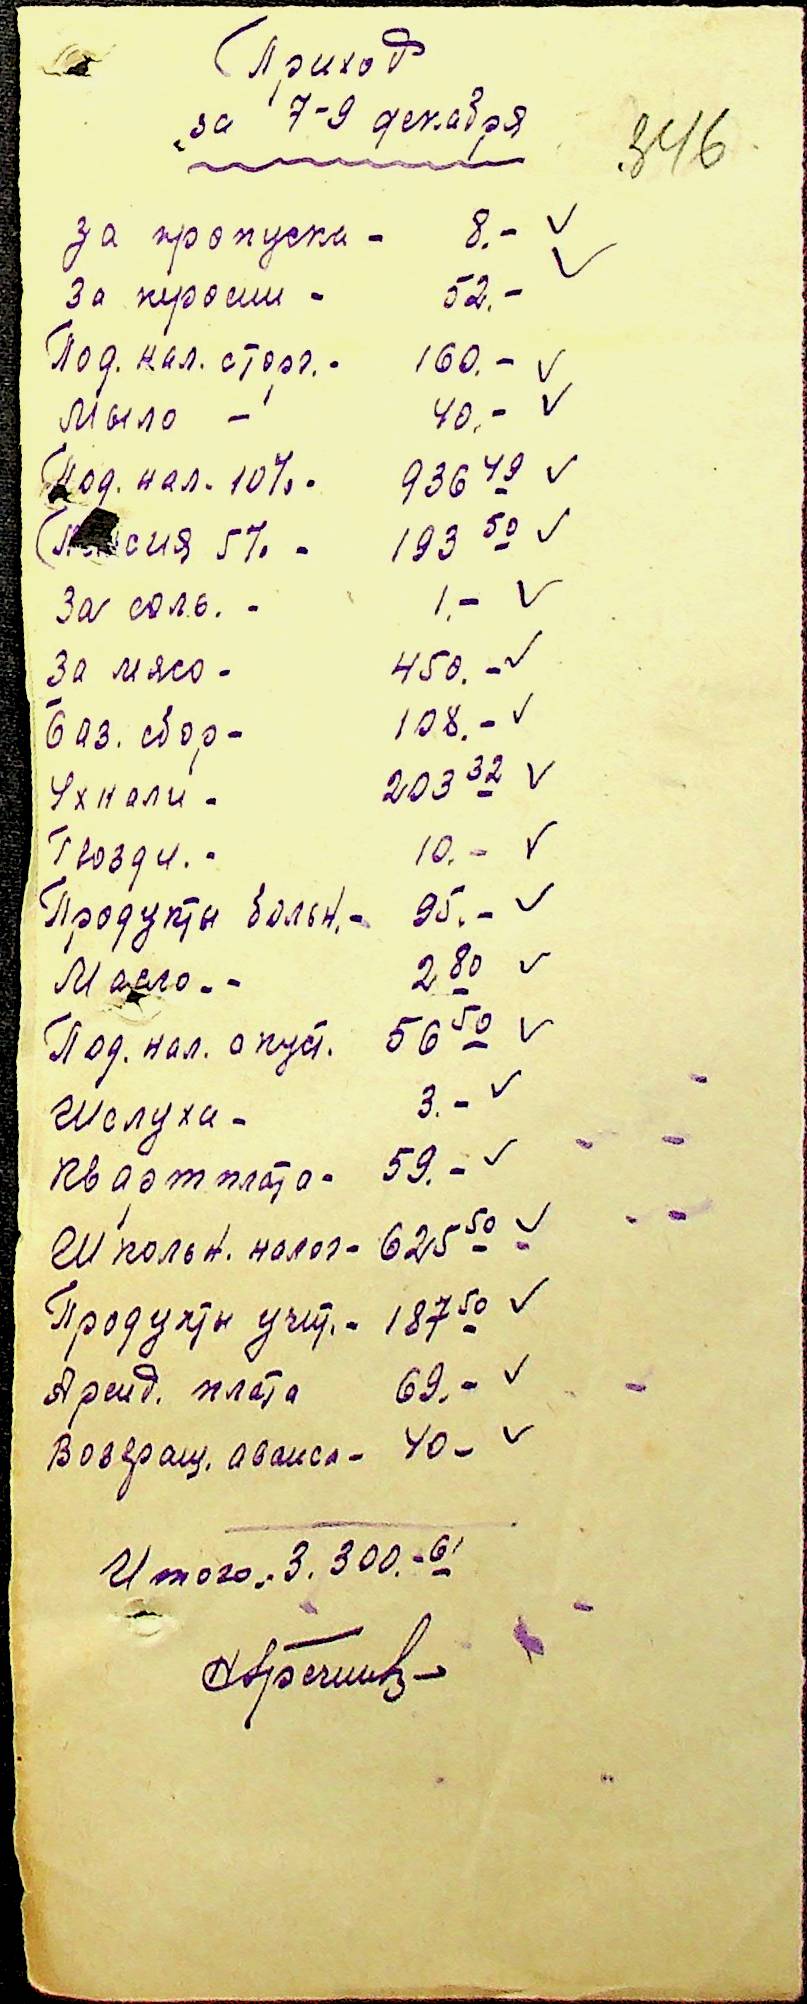 Приход
за 7-9 декабря
346
За пропуска - 8.-
За кросии - 52.-
Под. нал. сторг. - 160.-
Мыло - 40.-
Под. нал. 10% - 936 49
5% - 193 50
За соль. - 1.-
За мясо - 450.-
Баз. сбор - 108.-
Ухнали - 203 32
Гвозди. - 10.-
Продукты больн. - 95.-
Масло. - 2 80
Под. нал. опуст. 56 50
Шслуха - 3.-
Квартплата - 59.-
Школьн. налог - 625 50
Продукты учит. - 187 50
Аренд. плата 69.-
Возвращ. аванса - 40 -
Итого. 3.300.-61